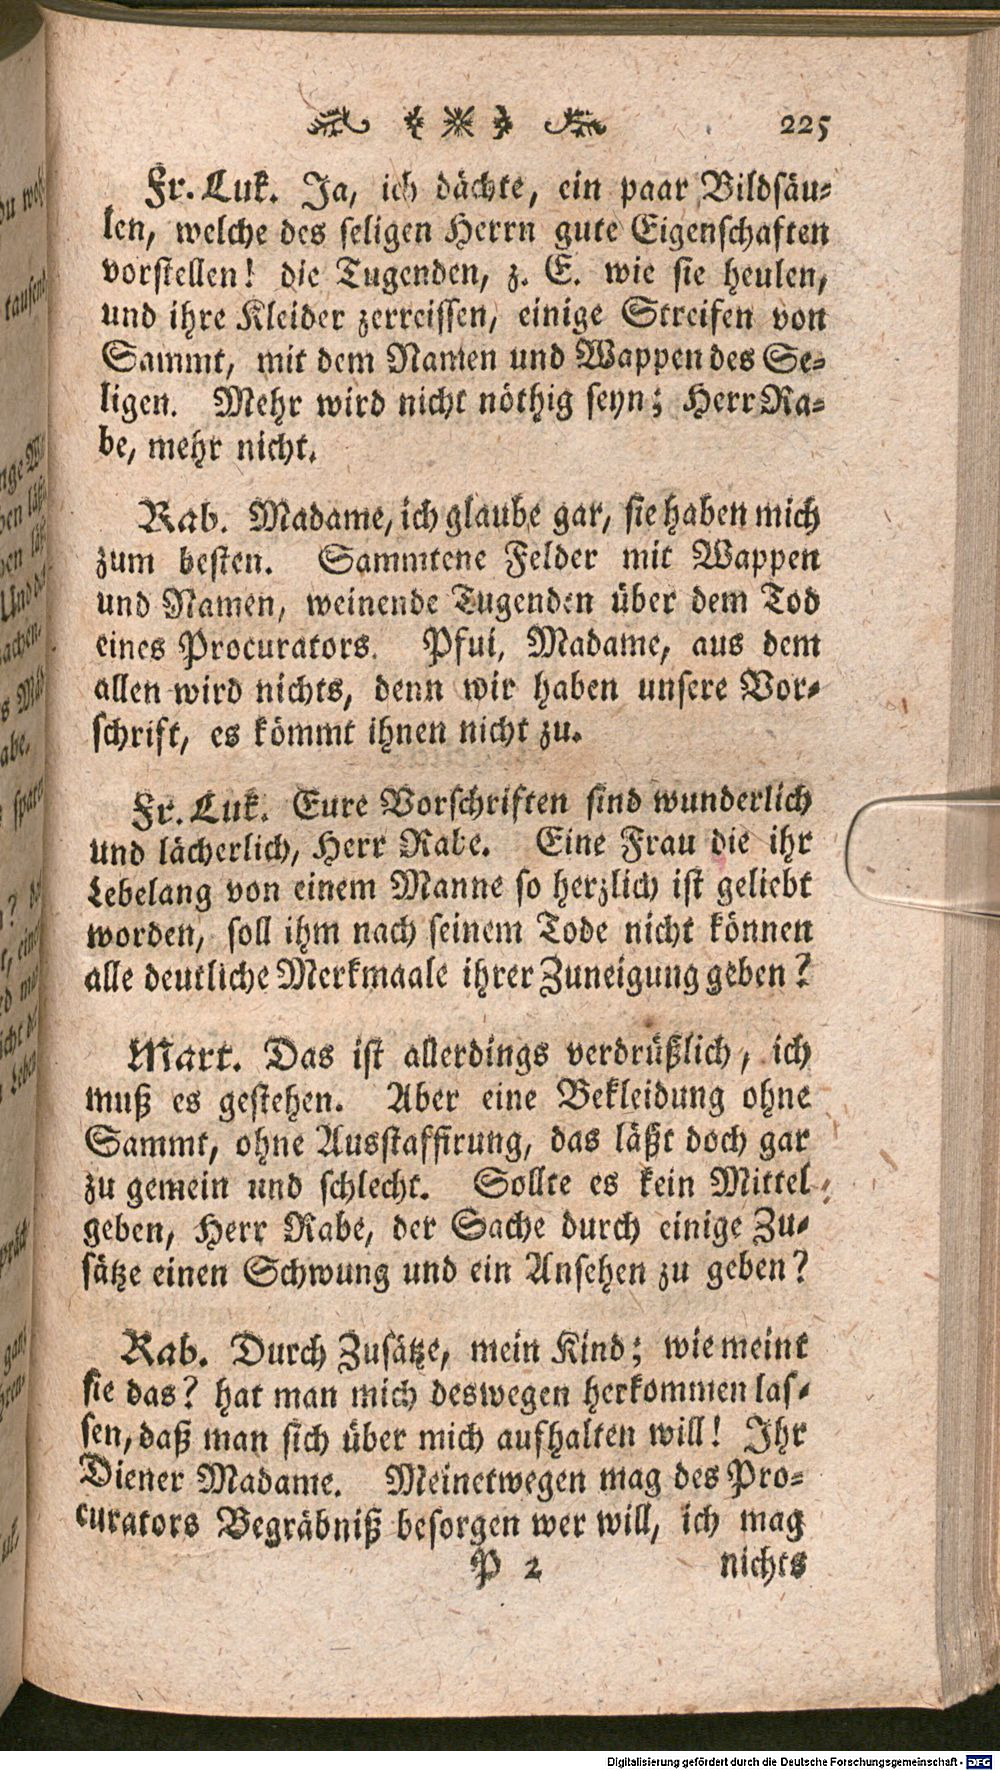 225
Fr. Luk. Ja, ich dächte, ein paar Bildsäu-
len, welche des seligen Herrn gute Eigenschaften
vorstellen! die Tugenden, z. E. wie sie heulen,
und ihre Kleider zerreissen, einige Streifen von
Sammt, mit dem Namen und Wappen des Se-
ligen. Mehr wird nicht nöthig seyn; Herr Ra-
be, mehr nicht.
Rab. Madame, ich glaube gar, sie haben mich
zum besten. Sammtene Felder mit Wappen
und Namen, weinende Tugenden über dem Tod
eines Procurators. Pfui, Madame, aus dem
allen wird nichts, denn wir haben unsere Vor-
schrift, es kömmt ihnen nicht zu.
Fr. Luk. Eure Vorschriften sind wunderlich
und lächerlich, Herr Rabe. Eine Frau die ihr
Lebelang von einem Manne so herzlich ist geliebt
worden, soll ihm nach seinem Tode nicht können
alle deutliche Merkmaale ihrer Zuneigung geben?
Mart. Das ist allerdings verdrüßlich, ich
muß es gestehen. Aber eine Bekleidung ohne
Sammt, ohne Ausstaffirung, das läßt doch gar
zu gemein und schlecht. Sollte es kein Mittel
geben, Herr Rabe, der Sache durch einige Zu-
sätze einen Schwung und ein Ansehen zu geben?
Rab. Durch Zusätze, mein Kind; wie meint
sie das? hat man mich deswegen herkommen las-
sen, daß man sich über mich aufhalten will! Ihr
Diener Madame. Meinetwegen mag des Pro-
curators Begräbniß besorgen wer will, ich mag
P 2 nichts
Digitalisierung gefördert durch die Deutsche Forschungsgemeinschaft - DFG